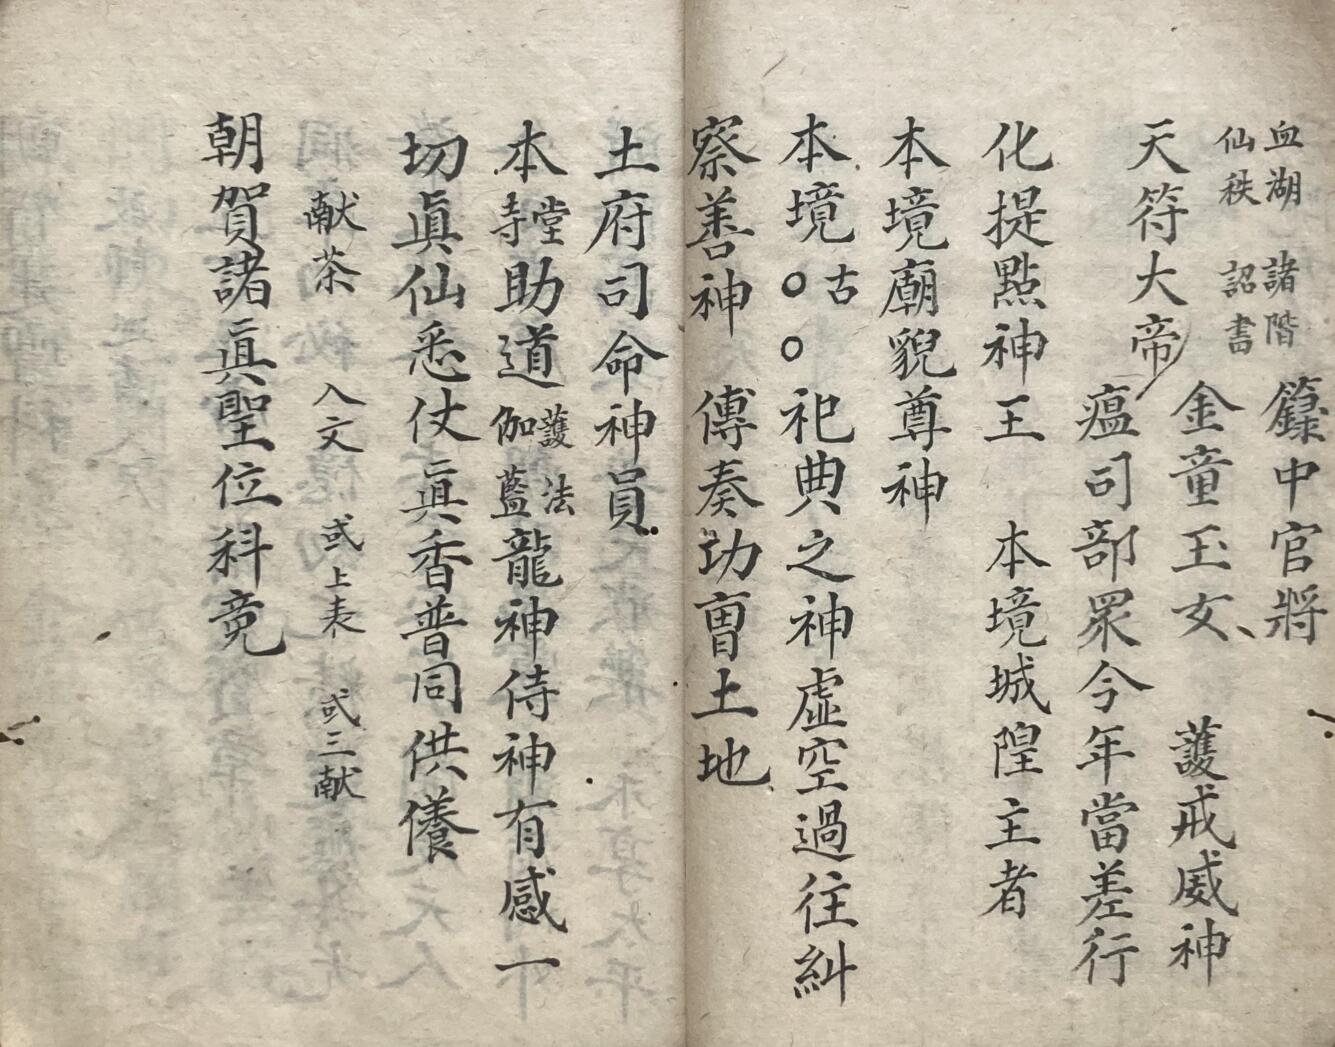 血湖 諸階
仙秩 詔書
籙中官將
金童玉女、 護戒威神
天符大帝
瘟司部眾今年當差行
化提點神王 本境城隍主者
本境廟貌尊神
本境〇古〇祀典之神虛空過往糾
察善神 傳奏功曺土地
土府司命神員
本寺堂助道伽藍護法龍神侍神有感一
切眞仙悉仗眞香普同供養
献茶 入文 或上表 或三献
朝賀諸眞聖位科竟